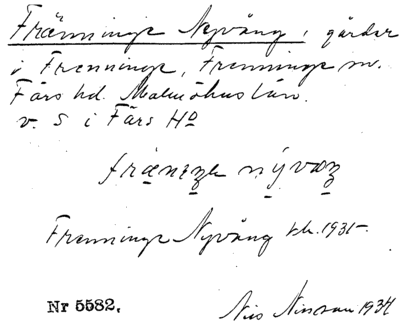 Fränninge Nyvång, gårdar
i Frenninge, Frenninge sn.
Färs hd. Malmöhus län.
v. S i Färs Hd
Frenninge Nyvång tb. 1931
Nr 5582.
Nils Nilsson 1934